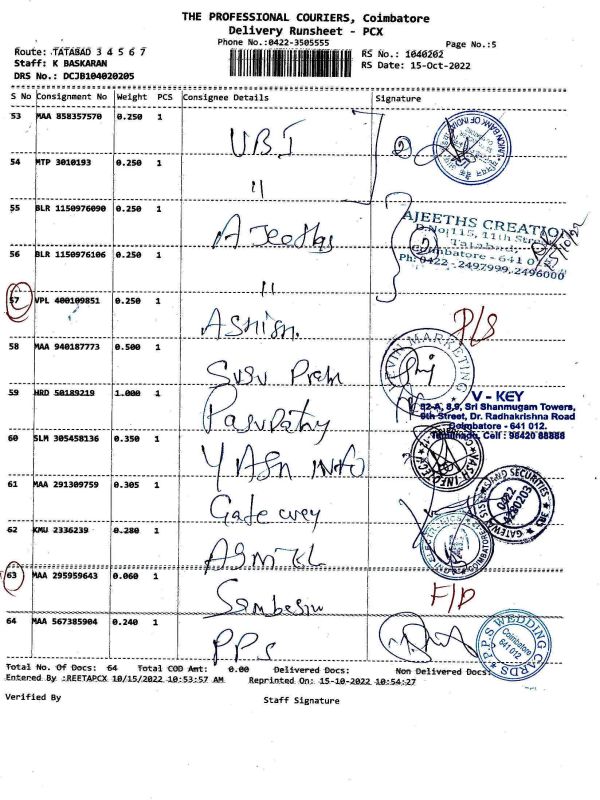 THE PROFESSIONAL COURIERS, Coimbatore
Delivery Runsheet - PCX
Phone No.:0422-3505555
Page No.:5
Route: TATABAD 3 4 5 6 7
RS No.: 1040202
Staff: K BASKARAN
RS Date: 15-Oct-2022
DRS No.: DCJB104020205
S No Consignment No Weight PCS Consignee Details Signature
53 MAA 858357570 0.250 1
UBI
2
UNION BANK OF INDIA
54 MTP 3010193 0.250 1
"
55 BLR 1150976090 0.250 1
AJeeths
2
AJEETHS CREATION
D.No:115, 11th Street
Tatabad,
Coimbatore - 641 012
Ph: 0422 - 2497999, 2496000
56 BLR 1150976106 0.250 1
"
57 VPL 400109851 0.250 1
Ashish.
P/S
58 MAA 940187773 0.500 1
Susu Prem
MARKETING
59 HRD 50189219 1.000 1
Pasupathy
V - KEY
52-A, 8,9, Sri Shanmugam Towers,
9th Street, Dr. Radhakrishna Road
Coimbatore - 641 012.
Tamilnadu, Cell : 98420 88888
60 SLM 305458136 0.350 1
YASH INFO
YASH INFOTECH
61 MAA 291309759 0.305 1
Gate wey
SECURITIES
0422
4280203
CBE
62 KMU 2336239 0.280 1
COIMBATORE
63 MAA 295959643 0.060 1
F/D
64 MAA 567385904 0.240 1
PPS
P.P.S WEDDING CARDS
Coimbatore
641 012
Total No. Of Docs: 64 Total COD Amt: 0.00 Delivered Docs: Non Delivered Docs:
Entered By :REETAPCX 10/15/2022 10:53:57 AM Reprinted On: 15-10-2022 10:54:27
Verified By
Staff Signature